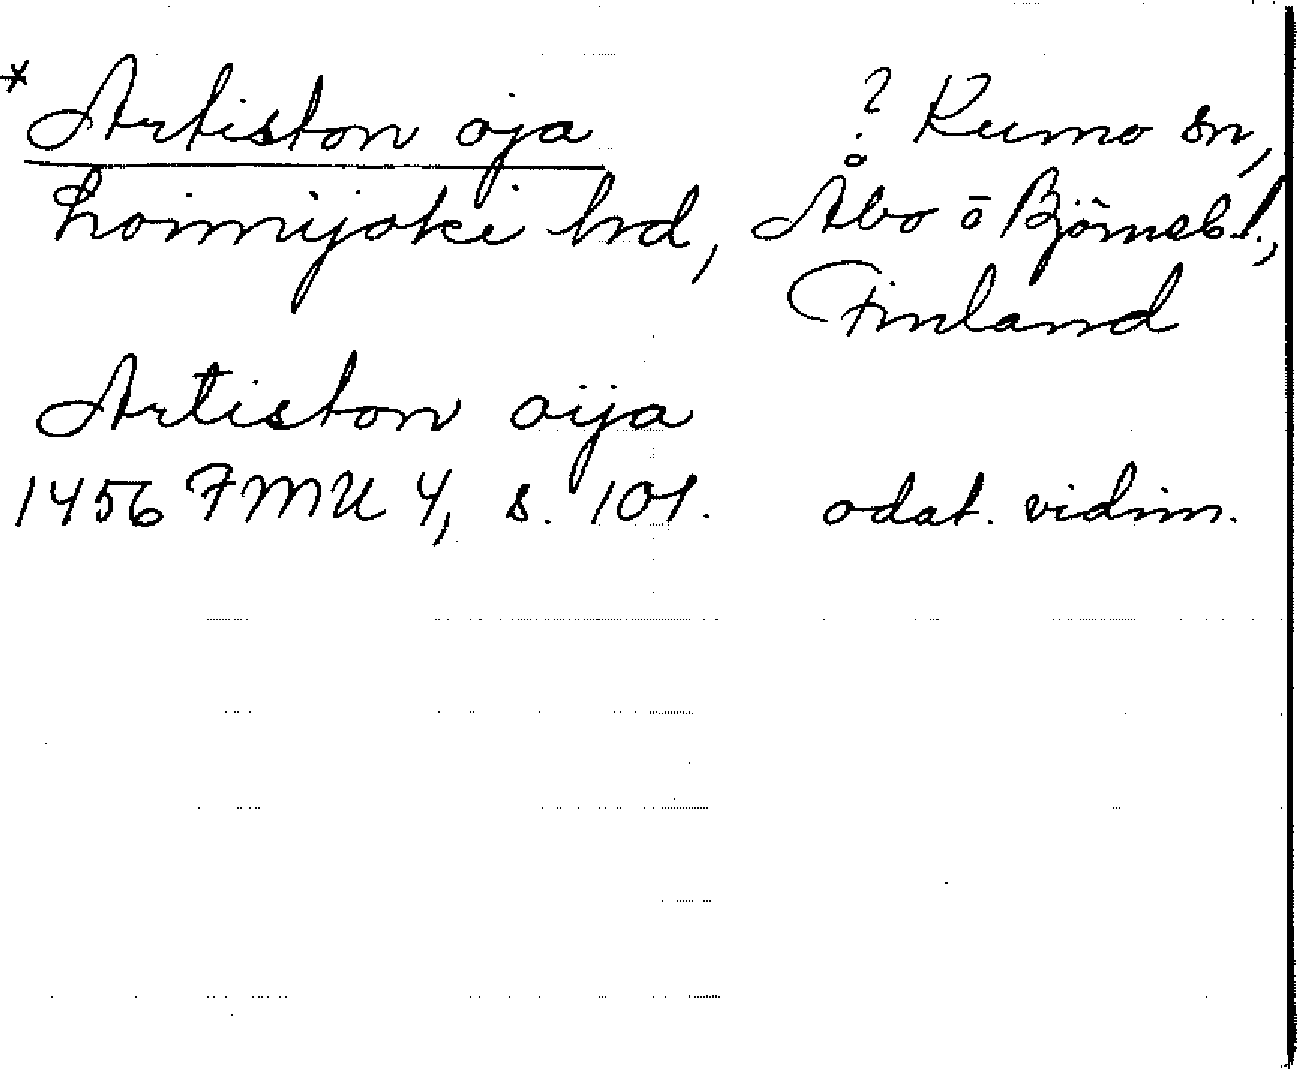 * Artiston oja ? Kumo sn,
Loimijoki hd, Åbo o Björneb l.,
Finland
Artiston oija
1456 FMU 4, s. 101. odat. vidim.